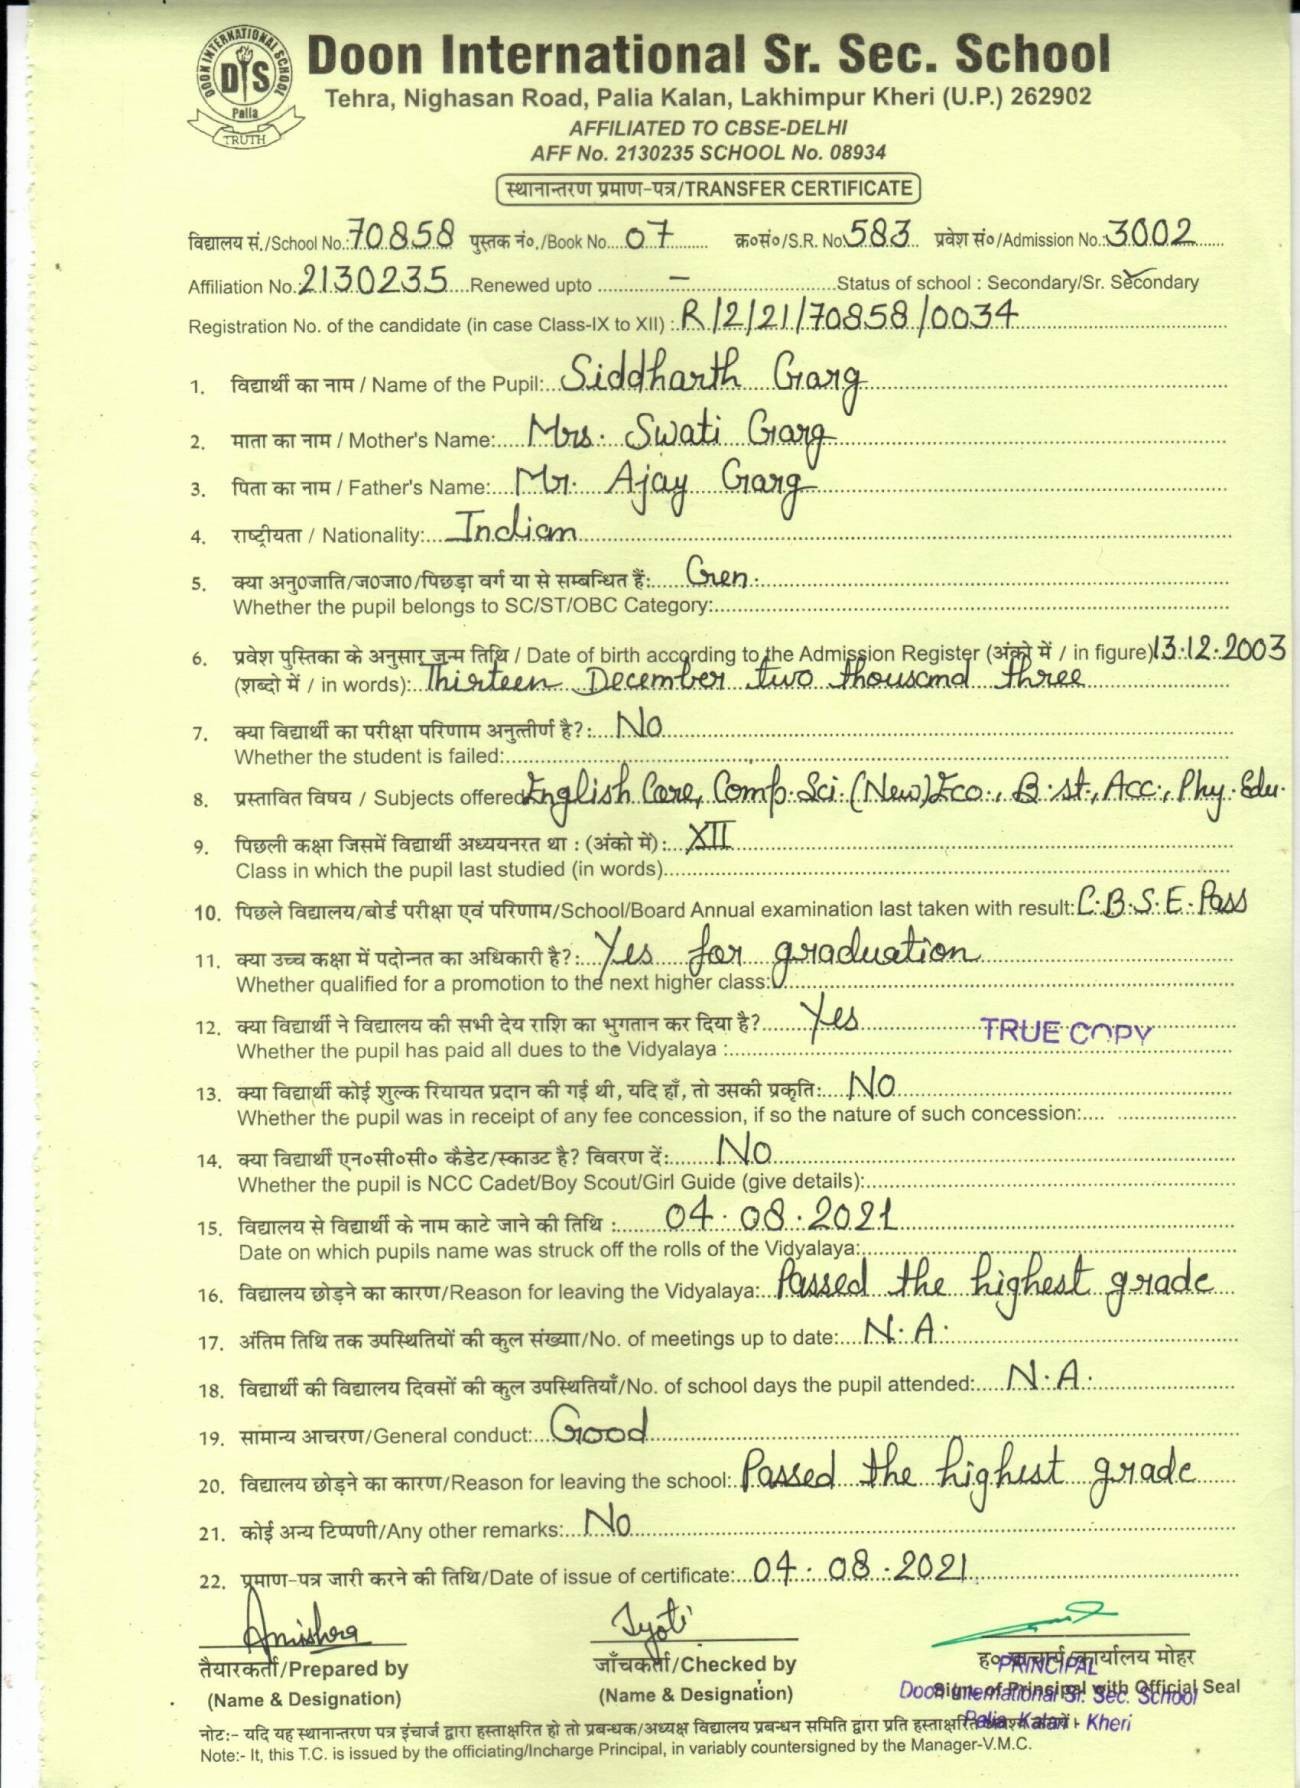 DOON INTERNATIONAL SCHOOL
DIS
Palia
TRUTH
Doon International Sr. Sec. School
Tehra, Nighasan Road, Palia Kalan, Lakhimpur Kheri (U.P.) 262902
AFFILIATED TO CBSE-DELHI
AFF No. 2130235 SCHOOL No. 08934
स्थानान्तरण प्रमाण-पत्र/TRANSFER CERTIFICATE
विद्यालय सं./School No.: 70858 पुस्तक नं०./Book No. 07 क्र०सं०/S.R. No. 583 प्रवेश सं०/Admission No.: 3002
Affiliation No.: 2130235 Renewed upto – Status of school : Secondary/Sr. Secondary
Registration No. of the candidate (in case Class-IX to XII) : R/2/21/70858/0034
1. विद्यार्थी का नाम / Name of the Pupil: Siddharth Garg
2. माता का नाम / Mother's Name: Mrs. Swati Garg
3. पिता का नाम / Father's Name: Mr. Ajay Garg
4. राष्ट्रीयता / Nationality: Indian
5. क्या अनु०जाति/ज०जा०/पिछड़ा वर्ग या से सम्बन्धित हैं: Gen.
Whether the pupil belongs to SC/ST/OBC Category:
6. प्रवेश पुस्तिका के अनुसार जन्म तिथि / Date of birth according to the Admission Register (अंको में / in figure) 13.12.2003
(शब्दो में / in words): Thirteen December two thousand three
7. क्या विद्यार्थी का परीक्षा परिणाम अनुत्तीर्ण है?: No
Whether the student is failed:
8. प्रस्तावित विषय / Subjects offered English Core, Comp. Sci. (New) Eco., B.st., Acc., Phy. Edu.
9. पिछली कक्षा जिसमें विद्यार्थी अध्ययनरत था : (अंको में): XII
Class in which the pupil last studied (in words)
10. पिछले विद्यालय/बोर्ड परीक्षा एवं परिणाम/School/Board Annual examination last taken with result: C.B.S.E. Pass
11. क्या उच्च कक्षा में पदोन्नत का अधिकारी है?: Yes for graduation
Whether qualified for a promotion to the next higher class:
12. क्या विद्यार्थी ने विद्यालय की सभी देय राशि का भुगतान कर दिया है? Yes
TRUE COPY
Whether the pupil has paid all dues to the Vidyalaya :
13. क्या विद्यार्थी कोई शुल्क रियायत प्रदान की गई थी, यदि हाँ, तो उसकी प्रकृति: No
Whether the pupil was in receipt of any fee concession, if so the nature of such concession:
14. क्या विद्यार्थी एन०सी०सी० कैडेट/स्काउट है? विवरण दें: No
Whether the pupil is NCC Cadet/Boy Scout/Girl Guide (give details):
15. विद्यालय से विद्यार्थी के नाम काटे जाने की तिथि : 04.08.2021
Date on which pupils name was struck off the rolls of the Vidyalaya:
16. विद्यालय छोड़ने का कारण/Reason for leaving the Vidyalaya: Passed the highest grade
17. अंतिम तिथि तक उपस्थितियों की कुल संख्याा/No. of meetings up to date: N.A.
18. विद्यार्थी की विद्यालय दिवसों की कुल उपस्थितियाँ/No. of school days the pupil attended: N.A.
19. सामान्य आचरण/General conduct: Good
20. विद्यालय छोड़ने का कारण/Reason for leaving the school: Passed the highest grade
21. कोई अन्य टिप्पणी/Any other remarks: No
22. प्रमाण-पत्र जारी करने की तिथि/Date of issue of certificate: 04.08.2021
Amishra Jyoti
तैयारकर्ता/Prepared by जाँचकर्ता/Checked by ह० प्राचार्य/कार्यालय मोहर
PRINCIPAL
(Name & Designation) (Name & Designation) Sign. of Principal with Official Seal
Doon International Sr. Sec. School
Palia Kalan - Kheri
नोटः- यदि यह स्थानान्तरण पत्र इंचार्ज द्वारा हस्ताक्षरित हो तो प्रबन्धक/अध्यक्ष विद्यालय प्रबन्धन समिति द्वारा प्रति हस्ताक्षरित
Note:- It, this T.C. is issued by the officiating/Incharge Principal, in variably countersigned by the Manager-V.M.C.